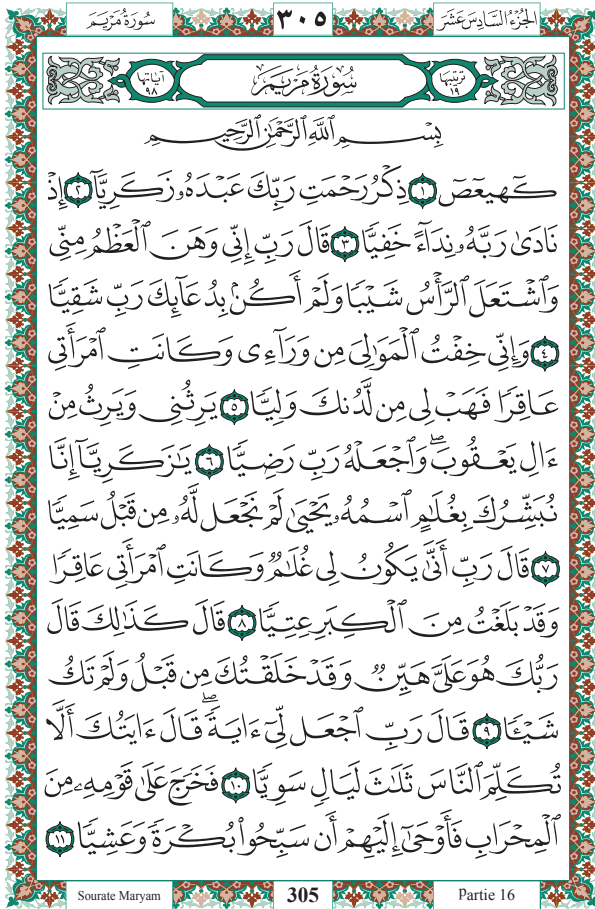 الجُزْءُ السَّادِسَ عَشَرَ ٣٠٥ سُورَةُ مَرْيَمَ
ترتيبها ١٩ سُورَةُ مَرْيَمَ آياتها ٩٨
بِسْمِ ٱللَّهِ ٱلرَّحْمَٰنِ ٱلرَّحِيمِ
كٓهيعٓصٓ ١ ذِكْرُ رَحْمَتِ رَبِّكَ عَبْدَهُۥ زَكَرِيَّآ ٢ إِذْ
نَادَىٰ رَبَّهُۥ نِدَآءً خَفِيًّا ٣ قَالَ رَبِّ إِنِّى وَهَنَ ٱلْعَظْمُ مِنِّى
وَٱشْتَعَلَ ٱلرَّأْسُ شَيْبًا وَلَمْ أَكُنۢ بِدُعَآئِكَ رَبِّ شَقِيًّا
٤ وَإِنِّى خِفْتُ ٱلْمَوَٰلِىَ مِن وَرَآءِى وَكَانَتِ ٱمْرَأَتِى
عَاقِرًا فَهَبْ لِى مِن لَّدُنكَ وَلِيًّا ٥ يَرِثُنِى وَيَرِثُ مِنْ
ءَالِ يَعْقُوبَ ۖ وَٱجْعَلْهُ رَبِّ رَضِيًّا ٦ يَٰزَكَرِيَّآ إِنَّا
نُبَشِّرُكَ بِغُلَٰمٍ ٱسْمُهُۥ يَحْيَىٰ لَمْ نَجْعَل لَّهُۥ مِن قَبْلُ سَمِيًّا
٧ قَالَ رَبِّ أَنَّىٰ يَكُونُ لِى غُلَٰمٌ وَكَانَتِ ٱمْرَأَتِى عَاقِرًا
وَقَدْ بَلَغْتُ مِنَ ٱلْكِبَرِ عِتِيًّا ٨ قَالَ كَذَٰلِكَ قَالَ
رَبُّكَ هُوَ عَلَىَّ هَيِّنٌ وَقَدْ خَلَقْتُكَ مِن قَبْلُ وَلَمْ تَكُ
شَيْـًٔا ٩ قَالَ رَبِّ ٱجْعَل لِّىٓ ءَايَةً ۚ قَالَ ءَايَتُكَ أَلَّا
تُكَلِّمَ ٱلنَّاسَ ثَلَٰثَ لَيَالٍ سَوِيًّا ١٠ فَخَرَجَ عَلَىٰ قَوْمِهِۦ مِنَ
ٱلْمِحْرَابِ فَأَوْحَىٰٓ إِلَيْهِمْ أَن سَبِّحُوا۟ بُكْرَةً وَعَشِيًّا ١١
Sourate Maryam 305 Partie 16